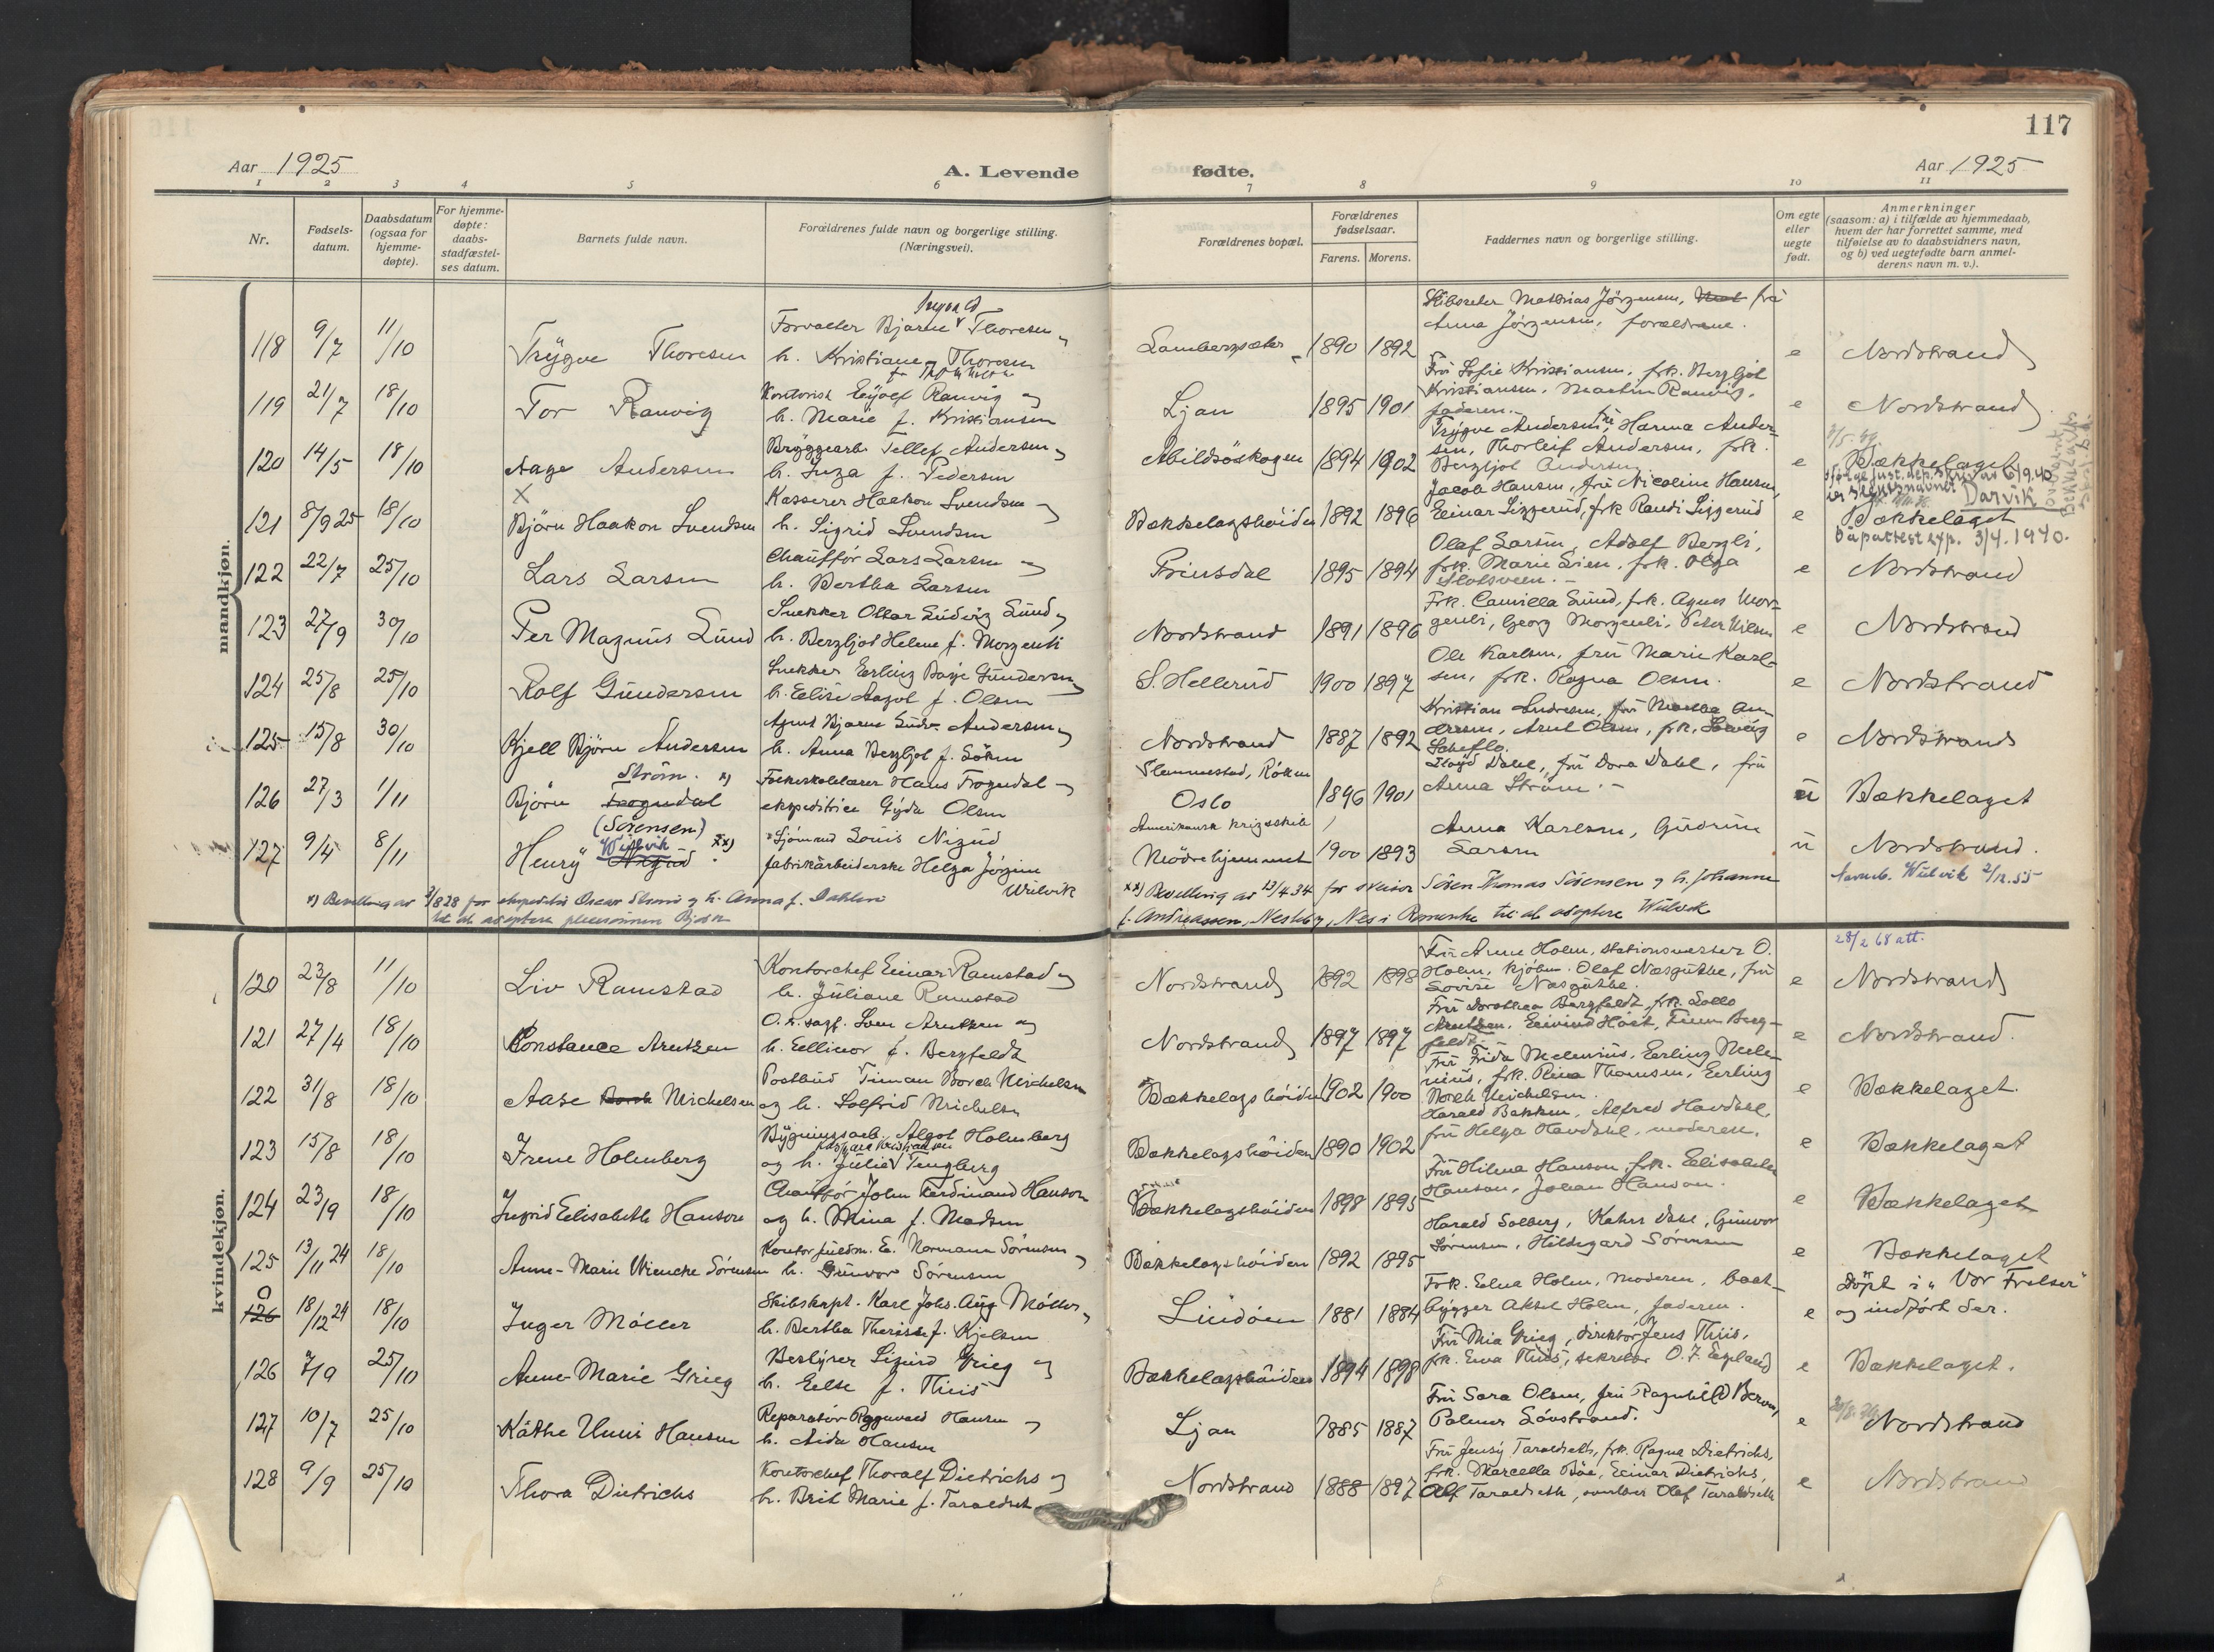 117
Aar 1925
A. Levende fødte.
Aar 1925
1 2 3 4 5 6 7 8 9 10 11
Nr.
Fødsels-
datum.
Daabsdatum
(ogsaa for
hjemme-
døpte).
For hjemme-
døpte:
daabs-
stadfæstel-
ses datum.
Barnets fulde navn.
Forældrenes fulde navn og borgerlige stilling.
(Næringsvei).
Forældrenes bopæl.
Forældrenes
fødselsaar.
Farens. Morens.
Faddernes navn og borgerlige stilling.
Om egte
eller
uegte
født.
Anmerkninger
(saasom: a) i tilfælde av hjemmedaab,
hvem der har forrettet samme, med
tilføielse av to daabsvidners navn,
og b) ved uegtefødte barn anmel-
derens navn m. v.).
mandkjøn.
118 9/7 11/10 Trygve Thoresen
Forvalter Bjarne Thoresen
h. Kristiane Thoresen
1890 1892
Mathias Jörgensen, frü
Anna Jörgensen, forældrene.
e Nordstrand
119 21/7 18/10 Tor Ranvig
Kontorist Ranvig og
h. Marie f. Kristiansen
Ljan 1895 1901
Frü Sofie Kristiansen, frk. Bergljot
Kristiansen, Martin Ranvig,
faderen.
e Nordstrand
120 14/5 18/10 Aage Andersen
Bryggearb. Tellef Andersen og
h. Inga f. Pedersen
Abildsöskogen 1894 1902
Trygve Andersen, Hanna Ander-
sen, Thorleif Andersen, frk.
Bergljot Andersen
e Bækkelaget
121 8/9 25 18/10 Björn Haakon Svendsen
Kasserer Haakon Svendsen og
h. Sigrid Svendsen
Bækkelagshöiden 1892 1896
Jacob Hansen, frü Nicoline Hansen,
Einar Siggerud, frk Randi Siggerud
e Bækkelaget
Darvik
Dåpattest exp. 3/4.1940.
122 22/7 25/10 Lars Larsen
Chaufför Lars Larsen og
h. Bertha Larsen
Prinsdal 1895 1894
Olaf Larsen, Adolf Bergli,
frk. Marie Lien, frk. Olga
Slotsveen.
e Nordstrand
123 27/9 30/10 Per Magnus Lund
Snekker Ottar Ludvig Lund og
h. Bergljot Helene f. Morgenli
Nordstrand 1891 1896
Frk. Camilla Lund, frk. Agnes Mor-
genli, Georg Morgenli, Peter Nilsen
e Nordstrand
124 25/8 25/10 Rolf Gundersen
Snekker Erling Gundersen og
h. Elise Aagot f. Olsen
S. Hellerud 1900 1897
Ole Karlsen, frü Marie Karl-
sen, frk. Ragna Olsen.
e Nordstrand
125 15/8 30/10 Kjell Björn Andersen
Agent Bjarne Andersen og
h. Anna Bergljot f.
Nordstrand 1887 1892
Kristian Andresen, frü Martha An-
dersen, Arnt Olsen, frk. Solveig
e Nordstrand
126 27/3 1/11 Björn Frogndal Ström. x)
Folkeskolelærer Hans Frogndal og
ekspeditrice Gyda Olsen
Slemmestad, Röken
Oslo 1896 1901
Lloyd Dahl, frü Dora Dahl, frü
Anna Ström.
ü Bækkelaget
127 9/4 8/11 Henry (Sörensen) Wiulvik xx)
Sjömand Louis Nigud
fabrikarbeiderske Helga Jörgine
Wiulvik
Amerikansk krigsskib
Mödrehjemmet 1900 1893
Anna Karlsen, Gudrun
Larsen
ü Nordstrand.
Navneb. Wiulvik 2/12.55
x) Bevilling av 2/8 28 for ekspeditör Oscar Ström og h. Anna f. Dahlen
til at adoptere pleiesönnen Björn
xx) Bevilling av 13/4 34 for Sören Thomas Sörensen og h. Johanne
f. Andreassen, Nesteby, Nes i Romerike til at adoptere Wiulvik
kvindekjøn.
28/2 68 att.
120 23/8 11/10 Liv Ramstad
Kontorchef Einar Ramstad og
h. Juliane Ramstad
Nordstrand 1892 1898
Frü Anne Holm, stationsmester O.
Holm, kjöbm. Olaf Næsguthe, frü
Lovise Næsguthe.
e Nordstrand
121 27/4 18/10 Constance Arntzen
O.r.sagf. Sven Arntzen og
h. Ellinor f. Bergfeldt
Nordstrand 1897 1897
Frü Dorothea Bergfeldt, frk. Lollo
Arntzen, Eivind Höst, Finn Berg-
feldt.
e Nordstrand.
122 31/8 18/10 Aase Michelsen
Postbud Timan Borch Michelsen
og h. Solfrid Michelsen
Bækkelagshöiden 1902 1900
Frü Frida Mellenius, Erling Melle-
nius, frk. Rina Thomsen, Erling
Borch Michelsen.
e Bækkelaget.
123 15/8 18/10 Irene Holmberg
Bygningsarb. Algot Holmberg
og h. Julie Tengberg
Bækkelagshöiden 1890 1902
Harald Bakken, Alfred Havdahl,
frü Helga Havdahl, moderen.
e Bækkelaget
124 23/9 18/10 Ingrid Elisabeth Hanson
Chaufför John Ferdinand Hanson
og h. Mina f. Madsen
Bækkelagshöiden 1898 1895
Frü Hilma Hanson, frk. Elisabeth
Hanson, Johan Hanson.
e Bækkelaget
125 13/11 24 18/10 Anne-Marie Wiencke Sörensen
Kontorfuldm. E. Normann Sörensen og
h. Gunvor Sörensen
Bækkelagshöiden 1892 1895
Harald Solberg, Kahrs Dahl, Gunvor
Sörensen, Hildegard Sörensen
e Bækkelaget
0 126 18/12 24 18/10 Inger Möller
Skibskapt. Karl Johs. Aug Möller og
h. Bertha Therese f. Kjelsen
Lindöen 1881 1884
Frk. Edna Holm, moderen, baat-
bygger Aksel Holm, faderen.
e döpt i "Vor Frelser"
og indfört der.
126 7/9 25/10 Anne-Marie Grieg
Bestyrer Sigurd Grieg og
h. Else f. Thiis
Bækkelagshöiden 1894 1898
Frü Mia Grieg, direktör Jens Thiis,
frk. Ewa Thiis, sekretær O. F. Egeland
e Bækkelaget.
127 10/7 25/10 Käthe Unni Hansen
Reparatör Ragnvald Hansen og
h. Aida Hansen
Ljan 1885 1887
Frü Sara Olsen, frü Ragnhild Bervn,
Palmer Lövstrand.
e Nordstrand
128 9/9 25/10 Thora Dietrichs
Kontorchef Thoralf Dietrichs og
h. Brit Marie f. Taraldset
Nordstrand 1888 1897
Frü Jensy Taraldseth, frk. Ragna Dietrichs,
frk. Marcella Böe, Einar Dietrichs,
Alf Taraldseth, Olaf Taraldseth
e Nordstrand